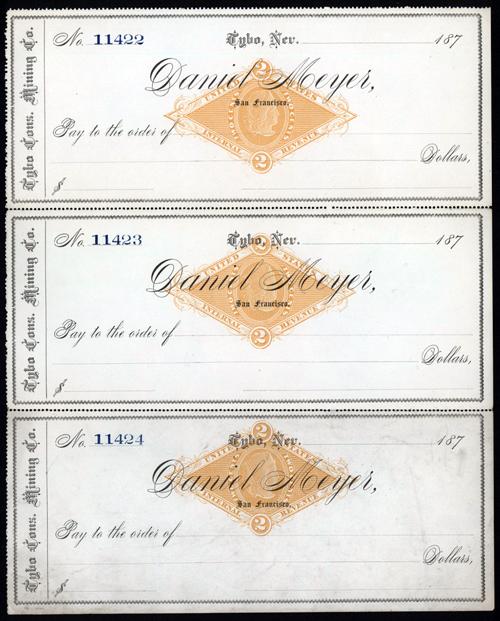 Tybo Cons. Mining Co.
No. 11422 Tybo, Nev. 187
Daniel Meyer,
San Francisco.
2
UNITED STATES
TWO CENTS
INTERNAL REVENUE
2
Pay to the order of
Dollars,
$
Tybo Cons. Mining Co.
No. 11423 Tybo, Nev. 187
Daniel Meyer,
San Francisco.
2
UNITED STATES
INTERNAL REVENUE
2
Pay to the order of
Dollars,
$
Tybo Cons. Mining Co.
No. 11424 Tybo, Nev. 187
Daniel Meyer,
San Francisco.
2
UNITED STATES
INTERNAL REVENUE
2
Pay to the order of
Dollars,
$